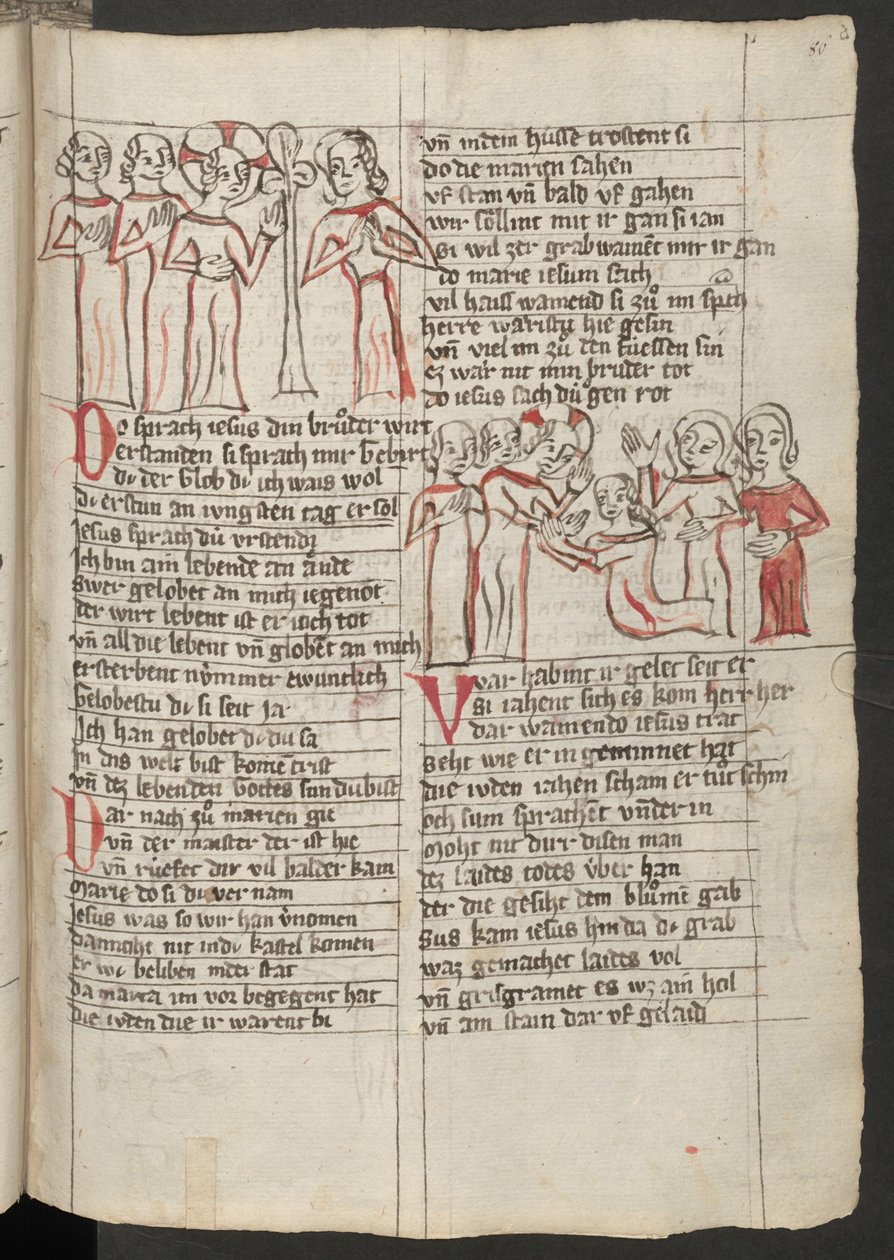 86
Do sprach iesus din brůder wirt
erstanden si sprach mir gebirt
dc der glob dc ich wais wol
dc erstun an iungsten tag er sol
Jesus sprach dů urstendi
Ich bin ain lebende an ände
Swer gelobet an mich iegenot
der wirt lebent ist er ioch tot
vn̄ all die lebent vn̄ globēt an mich
ersterbent nymmer ewiinclich
Gelobestu dc si seit Ja
Ich han gelobet dc du sa
In dis welt bist komē crist
vn̄ dez lebenden gottes sun du bist
Dar nach zů marien gie
vn̄ der maister der ist hie
vn̄ růefet dir vil balder kam
Marie do si dc ver nam
Jesus was so wir han v̓nomen
Dannoht nit in dc kastel komen
er wc beliben in der stat
da marta im vor begegent hat
die iuden die ir warent bi
vn̄ in dem husse trostent si
do die marien sahen
vf stan vn̄ bald vf gahen
wir sollint mit ir gan si ian
si wil zer grab wainēt mir ir gan
do marie iesum sach
vil haiss wainend si zů im sp̄ch
herre waristu hie gesin
vn̄ viel im zů den füessen sin
ez wär nit min brůder tot
do iesus sach dů ůgen rot
War habint ir geleit seit er
si iahent sich es kom herr her
dar wainendo iesus trat
seht wie er in geminnet hat
die iuden iahen scham er tůt schin
och sum sprachēt vnder in
Moht nit dirr disen man
dez laides todes über han
der die gesiht dem blůmē gab
Sus kam iesus hin da dc grab
waz gemachet laides vol
vn̄ grisgramet es wz ain hol
vn̄ ain stain dar vf gelaid